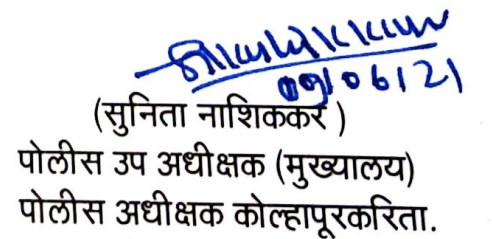 09/06/21
(सुनिता नाशिककर )
पोलीस उप अधीक्षक (मुख्यालय)
पोलीस अधीक्षक कोल्हापूरकरिता.